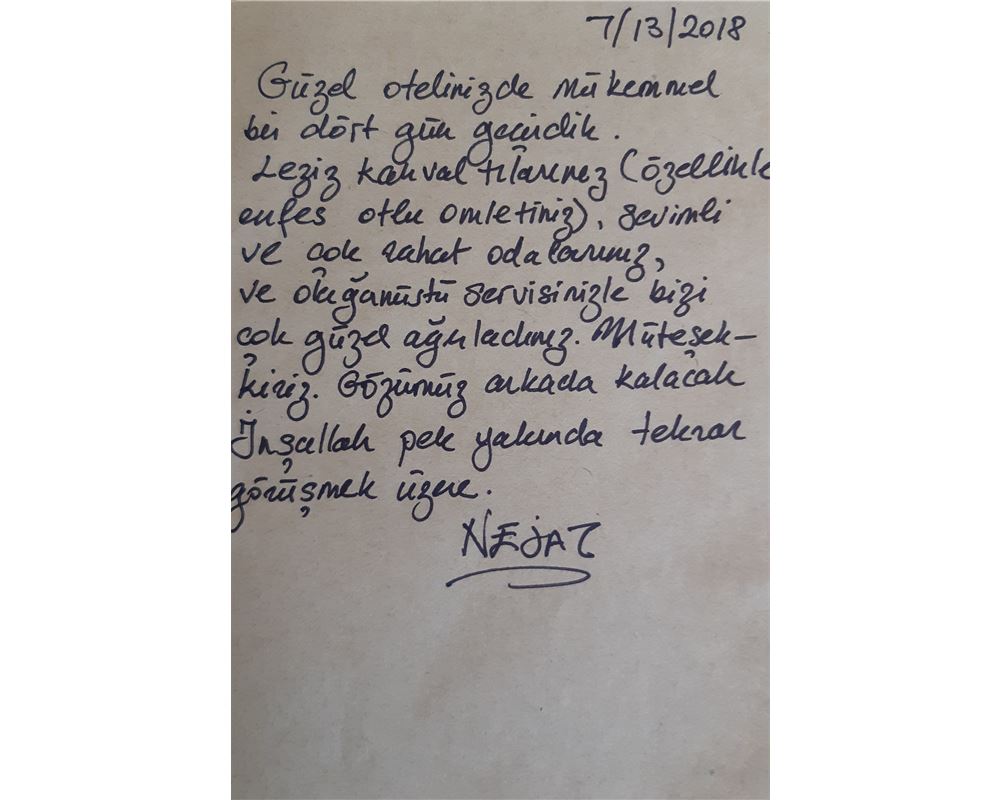 7/13/2018
Güzel otelinizde mükemmel
bir dört gün geçirdik.
Leziz kahvaltılarınız (özellikle
enfes otlu omletiniz), sevimli
ve çok rahat odalarınız,
ve olağanüstü servisinizle bizi
çok güzel ağırladınız. Müteşek-
kiriz. Gözümüz arkada kalacak
İnşallah pek yakında tekrar
görüşmek üzere.
NEJAT